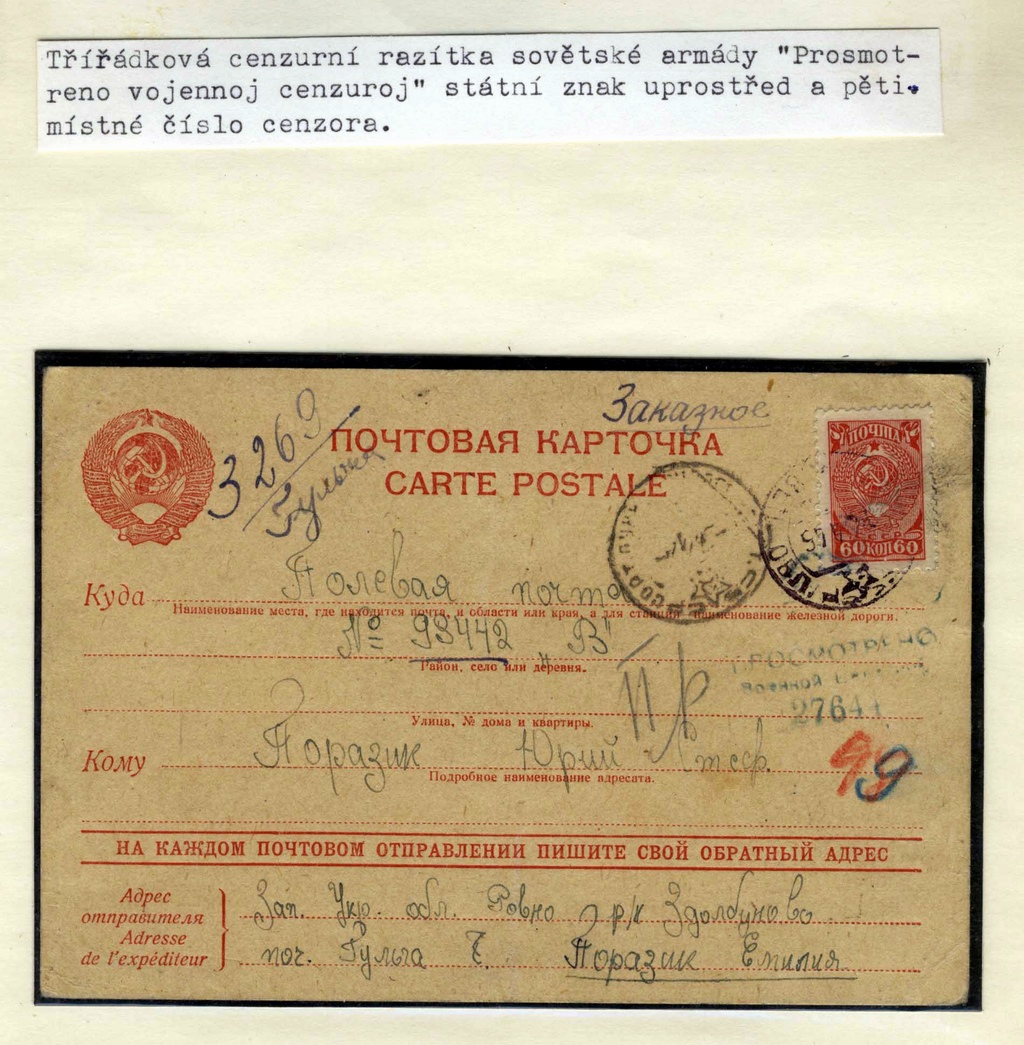 Třířádková cenzurní razítka sovětské armády "Prosmot-
reno vojennoj cenzuroj" státní znak uprostřed a pěti-
místné číslo cenzora.
Заказное
3269
ПОЧТОВАЯ КАРТОЧКА
CARTE POSTALE
ПОЧТА
60 КОП 60
Куда Полевая почта
Наименование места, где находится почта, и области или края, а для станции наименование железной дороги.
№ 93442 В
Район, село или деревня.
ПРОСМОТРЕНО
Военной
27644
Улица, № дома и квартиры.
Пр
Кому Поразик Юрий Стеф.
Подробное наименование адресата.
99
НА КАЖДОМ ПОЧТОВОМ ОТПРАВЛЕНИИ ПИШИТЕ СВОЙ ОБРАТНЫЙ АДРЕС
Адрес отправителя
Adresse de l'expéditeur
Зап. Укр. обл. Ровно р/к Здолбуново
поч. Гульча Поразик Емилия